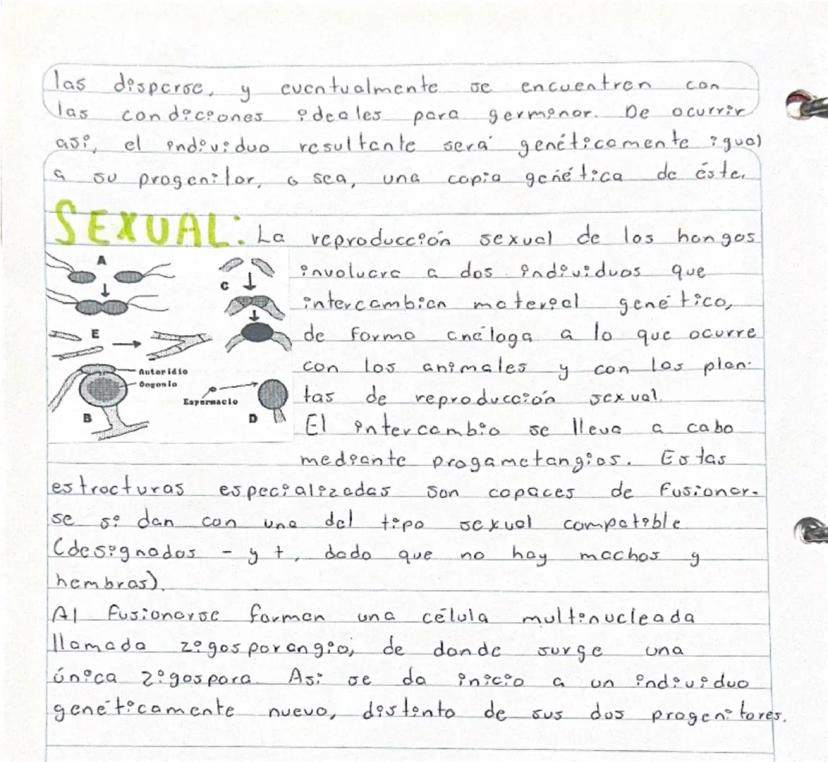 las disperse, y eventualmente se encuentren con
las condiciones ideales para germinar. De ocurrir
así, el individuo resultante será genéticamente igual
a su progenitor, o sea, una copia genética de éste.
SEXUAL: La reproducción sexual de los hongos
involucra a dos individuos que
intercambian material genético,
de forma análoga a lo que ocurre
con los animales y con las plan-
tas de reproducción sexual.
El intercambio se lleva a cabo
mediante progametangios. Estas
estructuras especializadas son capaces de fusionar-
se si dan con una del tipo sexual compatible
(designados - y +, dado que no hay machos y
hembras).
Al fusionarse forman una célula multinucleada
llamada zigosporangio, de donde surge una
única zigospora. Así se da inicio a un individuo
genéticamente nuevo, distinto de sus dos progenitores.
A
C
E
Autoridio
Oogonio
B
Espermacio
D